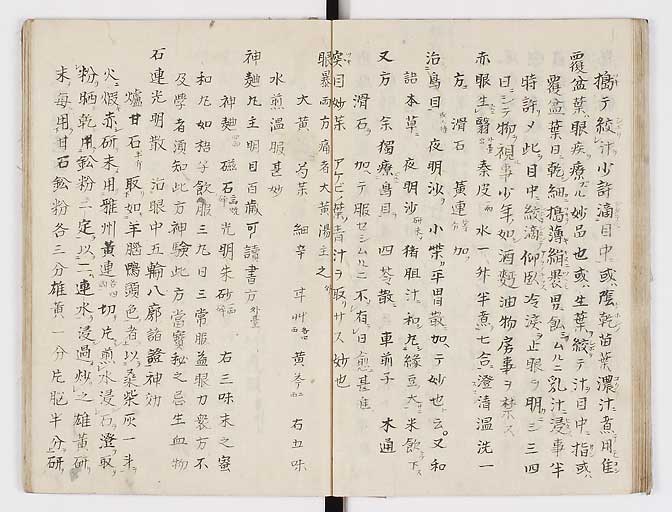 搗テ絞汁少許滴目中或蔭乾苗葉濃汁煮用佳
覆盆葉眼疾療スル妙品也或生葉絞テ汁目中指或
覆盆葉日乾細搗薄絹褁男飲シムルニ乳汁浸事半
時許〆此目中絞滴仰臥冷淚止眼ヲ明ニ三四
日ニシテ物視事少年如酒麪油物房事ヲ禁ス
赤眼生翳 秦皮一両 水一升半煮七合澄清温洗一
方 滑石 黄連 加
治鳥目 夜明沙 小柴平胃散加テ妙也云又和
語本草ニ 夜明沙 猪胆汁和丸緑豆大米飲下
又方 余獨療鳥目 四苓散 車前子 木通
滑石 加テ服セシムルニ不有日愈甚佳
突目妙茶 アケビノ葉青汁ヲ取サス妙也
眼暴両方痛者大黄湯主之
大黄 芍薬 細辛 甘艸 黄芩 右五味
水煎温服甚妙
神麹丸主明目百歳可讀書方
神麹 磁石 光明朱砂 右三味末之蜜
和丸如梧子飲服三九日三常服益眼力衆方不
及學者須知此方神験此方當寳秘之忌生血物
石連光明散 治眼中五輪八廓諸證神効
爐甘石 取如羊腦鴨頭色者以桑柴灰一末
火煅赤研末用雅州黄連 切片煎水浸石澄取
粉晒乾用鉛粉二定以二連水浸過炒之雄黄研
末每用甘石鉛粉各三分雄黄一分片腦半分研